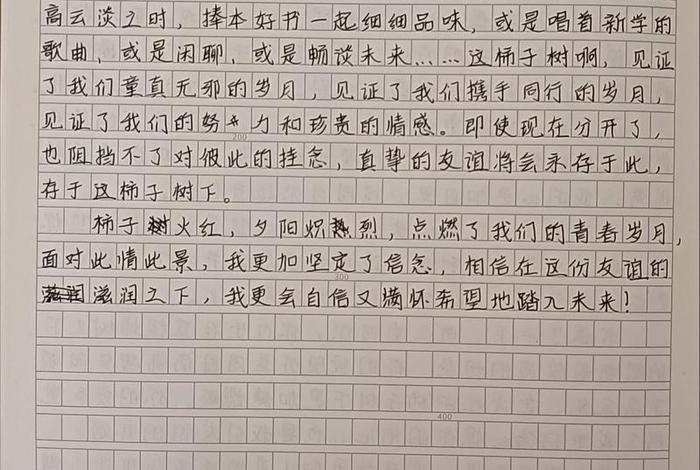 高云淡之时，捧本好书一起细细品味，或是唱首新学的
歌曲，或是闲聊，或是畅谈未来……这柿子树啊，见证
了我们童真无邪的岁月，见证了我们携手同行的岁月，
见证了我们的努力和珍贵的情感。即使现在分开了，
200
也阻挡不了对彼此的挂念，真挚的友谊将会永存于此，
存于这柿子树下。
柿子树火红，夕阳炽烈，点燃了我们的青春岁月，
面对此情此景，我更加坚定了信念，相信在这份友谊的
300
滋润之下，我更会自信又满怀希望地踏入未来！
400